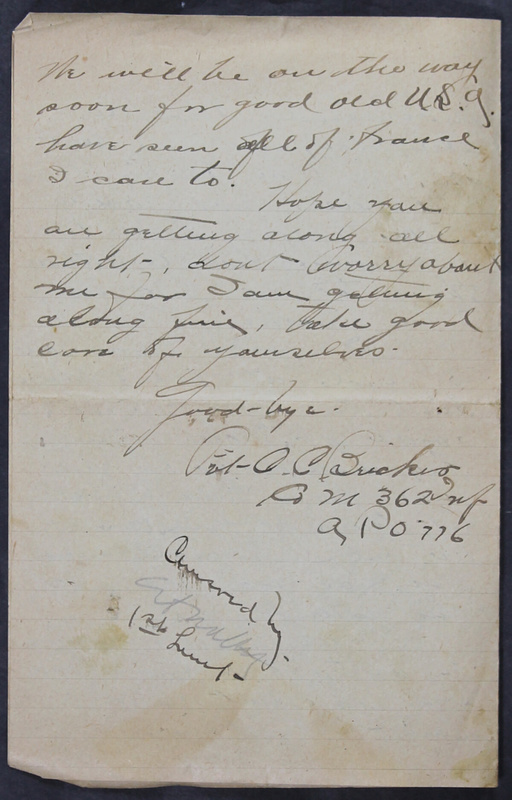 We will be on the way
soon for good old U.S.A.
have seen all of France
I care to.
Hope you
are getting along all
right, dont worry about
me for I am getting
along fine, take good
care of yourselves.
Good-bye.
Pvt. O. C. Bricker
Co M 362 Inf
A P O 776
Censored by
1st Lieut-